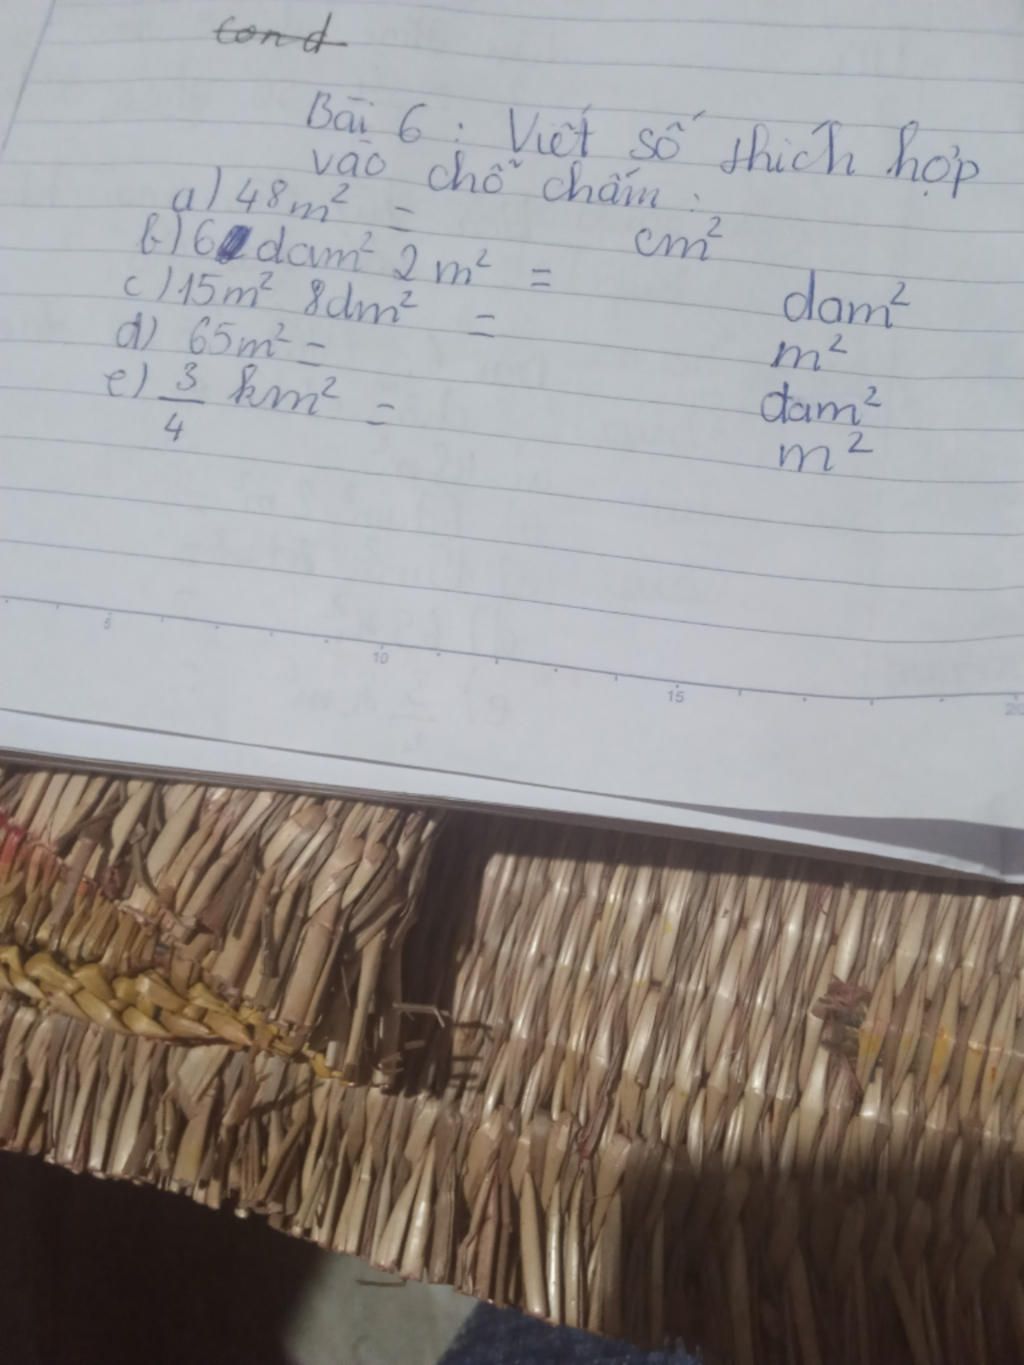 cond
Bài 6 : Viết số thích hợp
vào chỗ chấm :
a) 48m² = cm²
b) 6 dam² 2 m² = dam²
c) 15m² 8dm² = m²
d) 65m² = dam²
e) 3/4 km² = m²
5 10 15 20